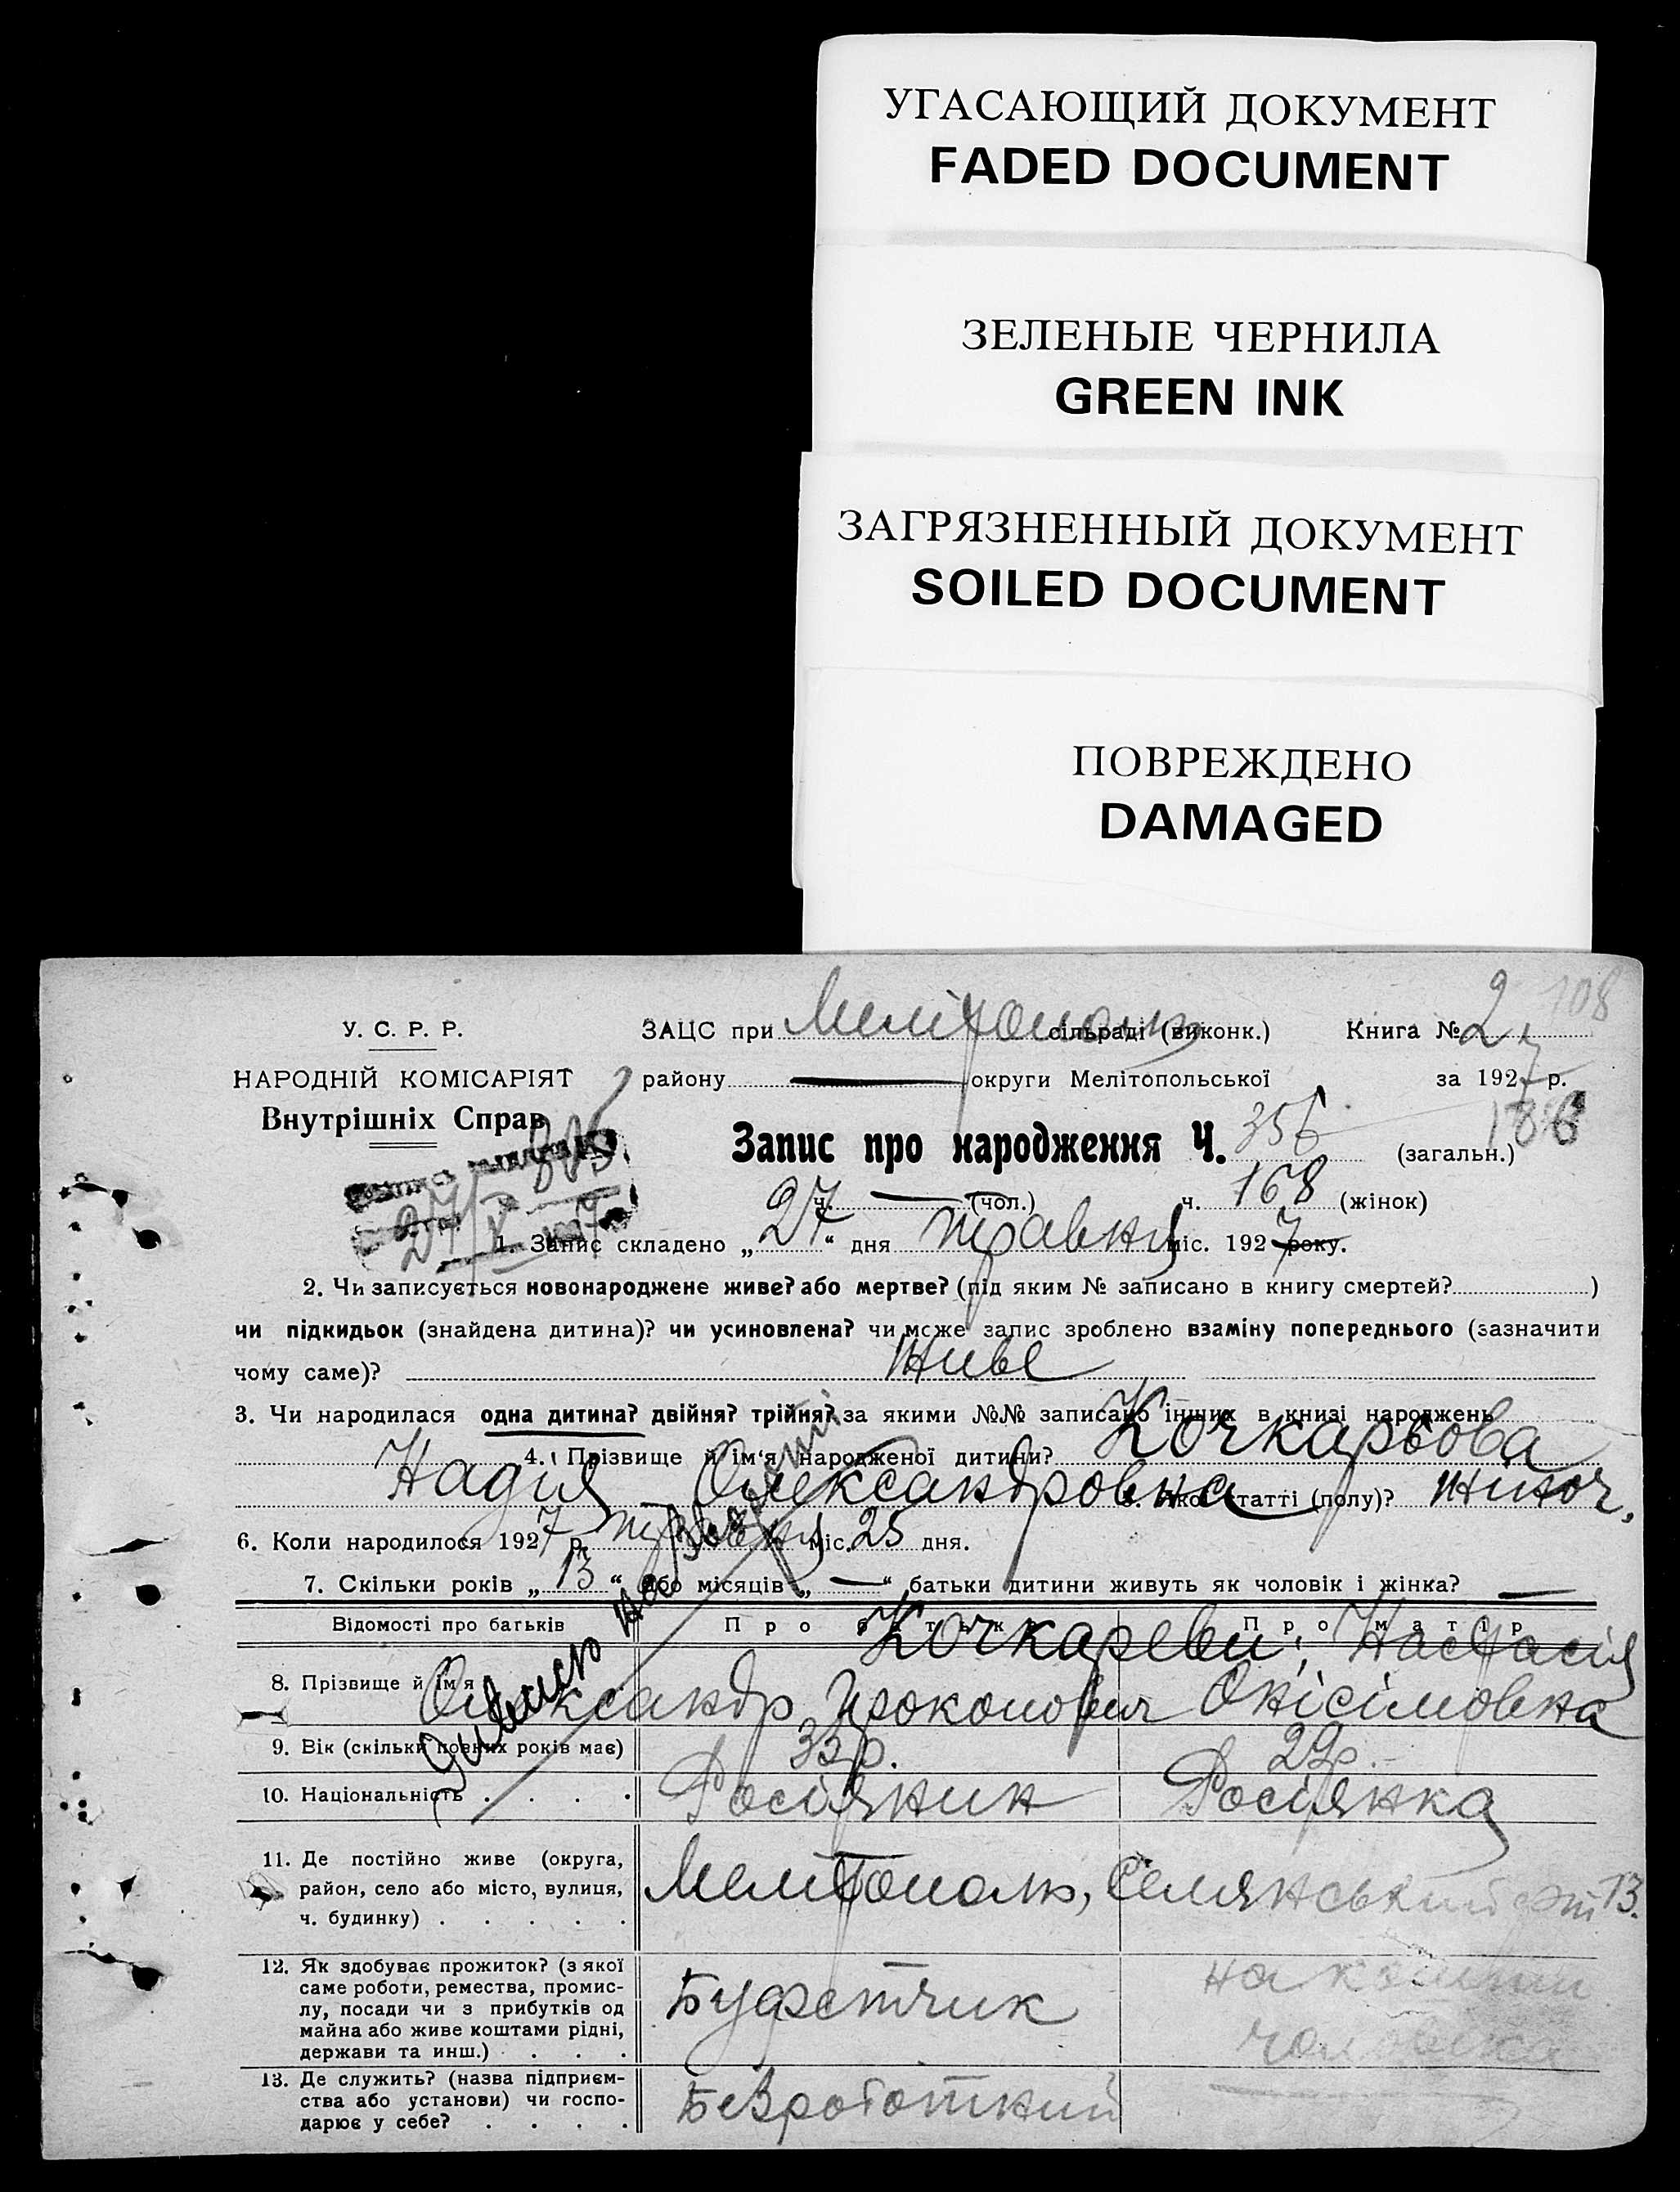 УГАСАЮЩИЙ ДОКУМЕНТ
FADED DOCUMENT
ЗЕЛЕНЫЕ ЧЕРНИЛА
GREEN INK
ЗАГРЯЗНЕННЫЙ ДОКУМЕНТ
SOILED DOCUMENT
ПОВРЕЖДЕНО
DAMAGED
108
У. С. Р. Р. ЗАЦС при Мелітополь сільраді (виконк.) Книга № 2
НАРОДНІЙ КОМІСАРІЯТ району округи Мелітопольської за 1927 р.
Внутрішніх Справ
Запис про народження Ч. 356 (загальн.) 186
ч. — (чол.) ч. 168 (жінок)
27/V 1927
1. Запис складено „27“ дня травня міс. 1927 року.
2. Чи записується новонароджене живе? або мертве? (під яким № записано в книгу смертей? )
чи підкидьок (знайдена дитина)? чи усиновлена? чи може запис зроблено взаміну попереднього (зазначити
чому саме)? Живе
3. Чи народилася одна дитина? двійня? трійня? за якими №№ записано інших в книзі народжень
4. Прізвище й ім'я народженої дитини? Кочкарьова
Надія Олександровна 5. Якої статті (полу)? жіноч.
6. Коли народилося 1927 р. травня міс. 25 дня.
7. Скільки років „13“ або місяців „—“ батьки дитини живуть як чоловік і жінка? —
Відомості про батьків Про батька Про матір
8. Прізвище й ім'я Кочкареви; Настасія
Олександр Прокопович Онісімовна
9. Вік (скільки повних років має) 33 р. 29 р.
10. Національність Росіянин Росіянка
11. Де постійно живе (округа,
район, село або місто, вулиця,
ч. будинку) Мелітополь, Селянський 13.
12. Як здобуває прожиток? (з якої
саме роботи, ремества, промис-
лу, посади чи з прибутків од
майна або живе коштами рідні,
держави та инш.) Буфетчик на кошти
чоловіка
13. Де служить? (назва підприєм-
ства або установи) чи госпо-
дарює у себе? Безроботний